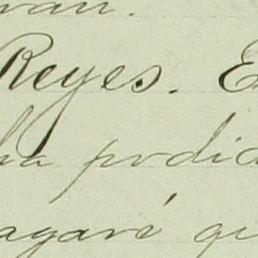 van.
Reyes. E
ha podid
agaré qu